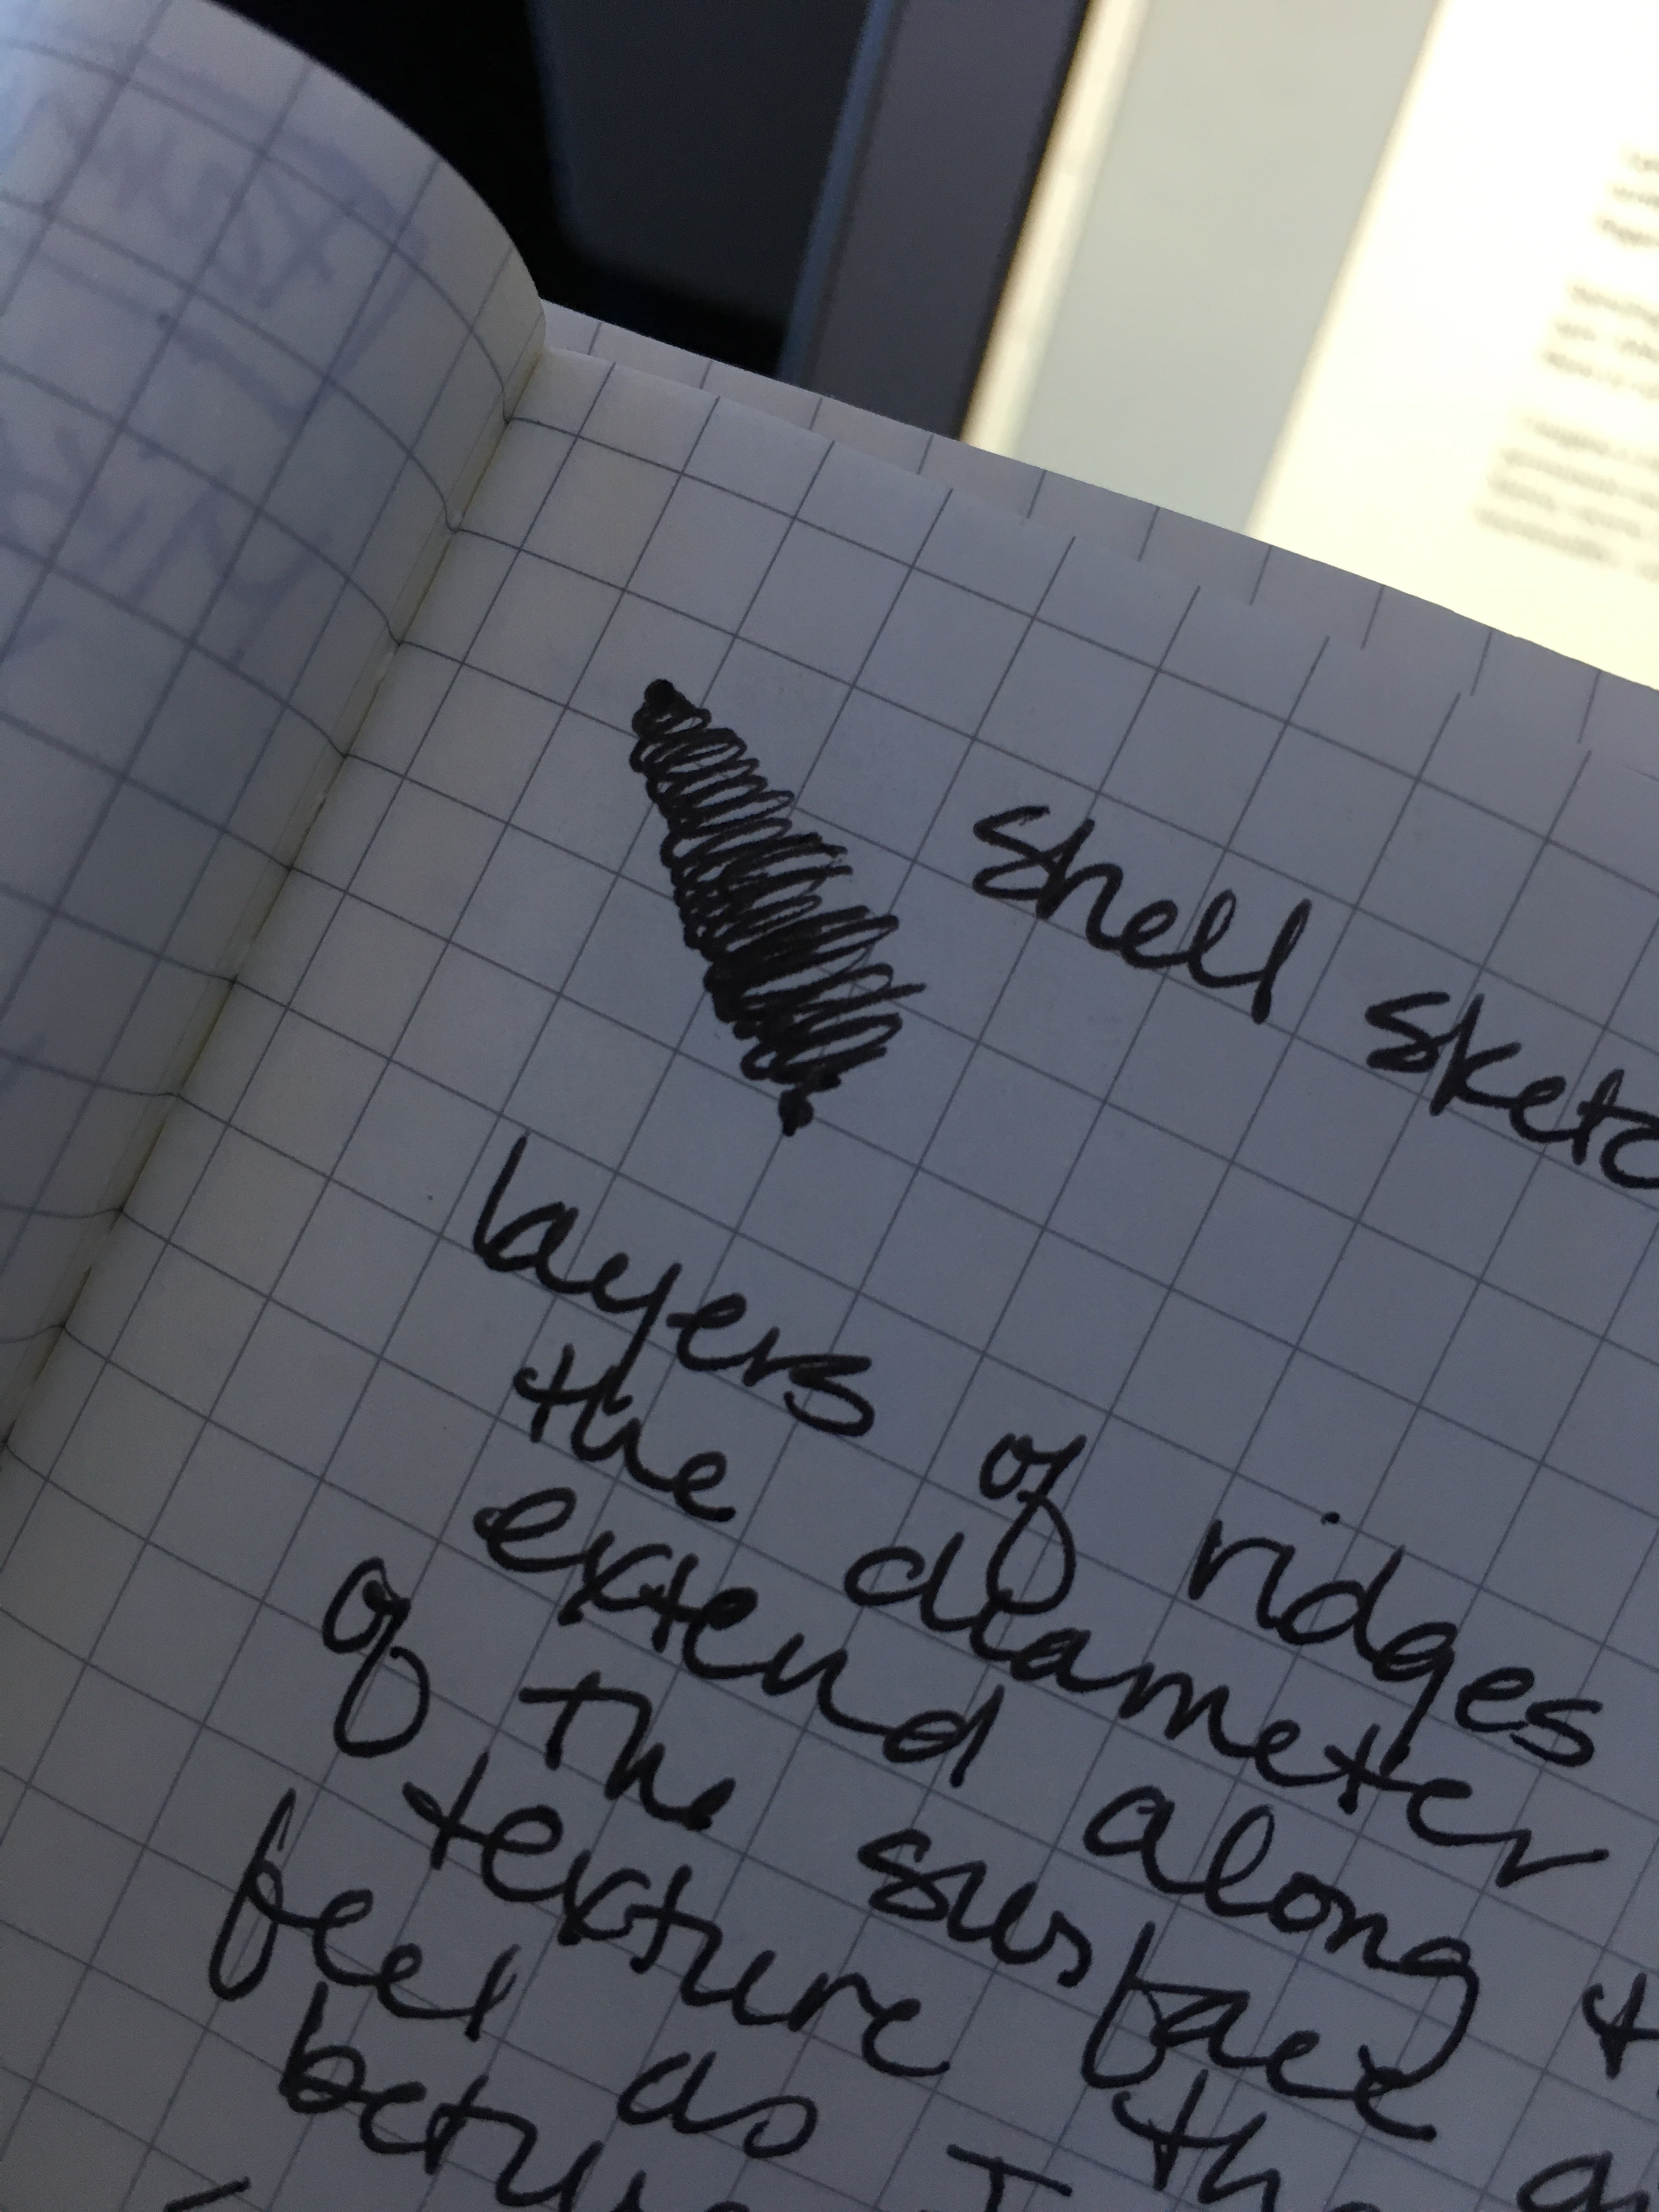 shell sketc
layers of ridges
the diameter
extend along t
of the surface a
texture tha
feel as I
betw